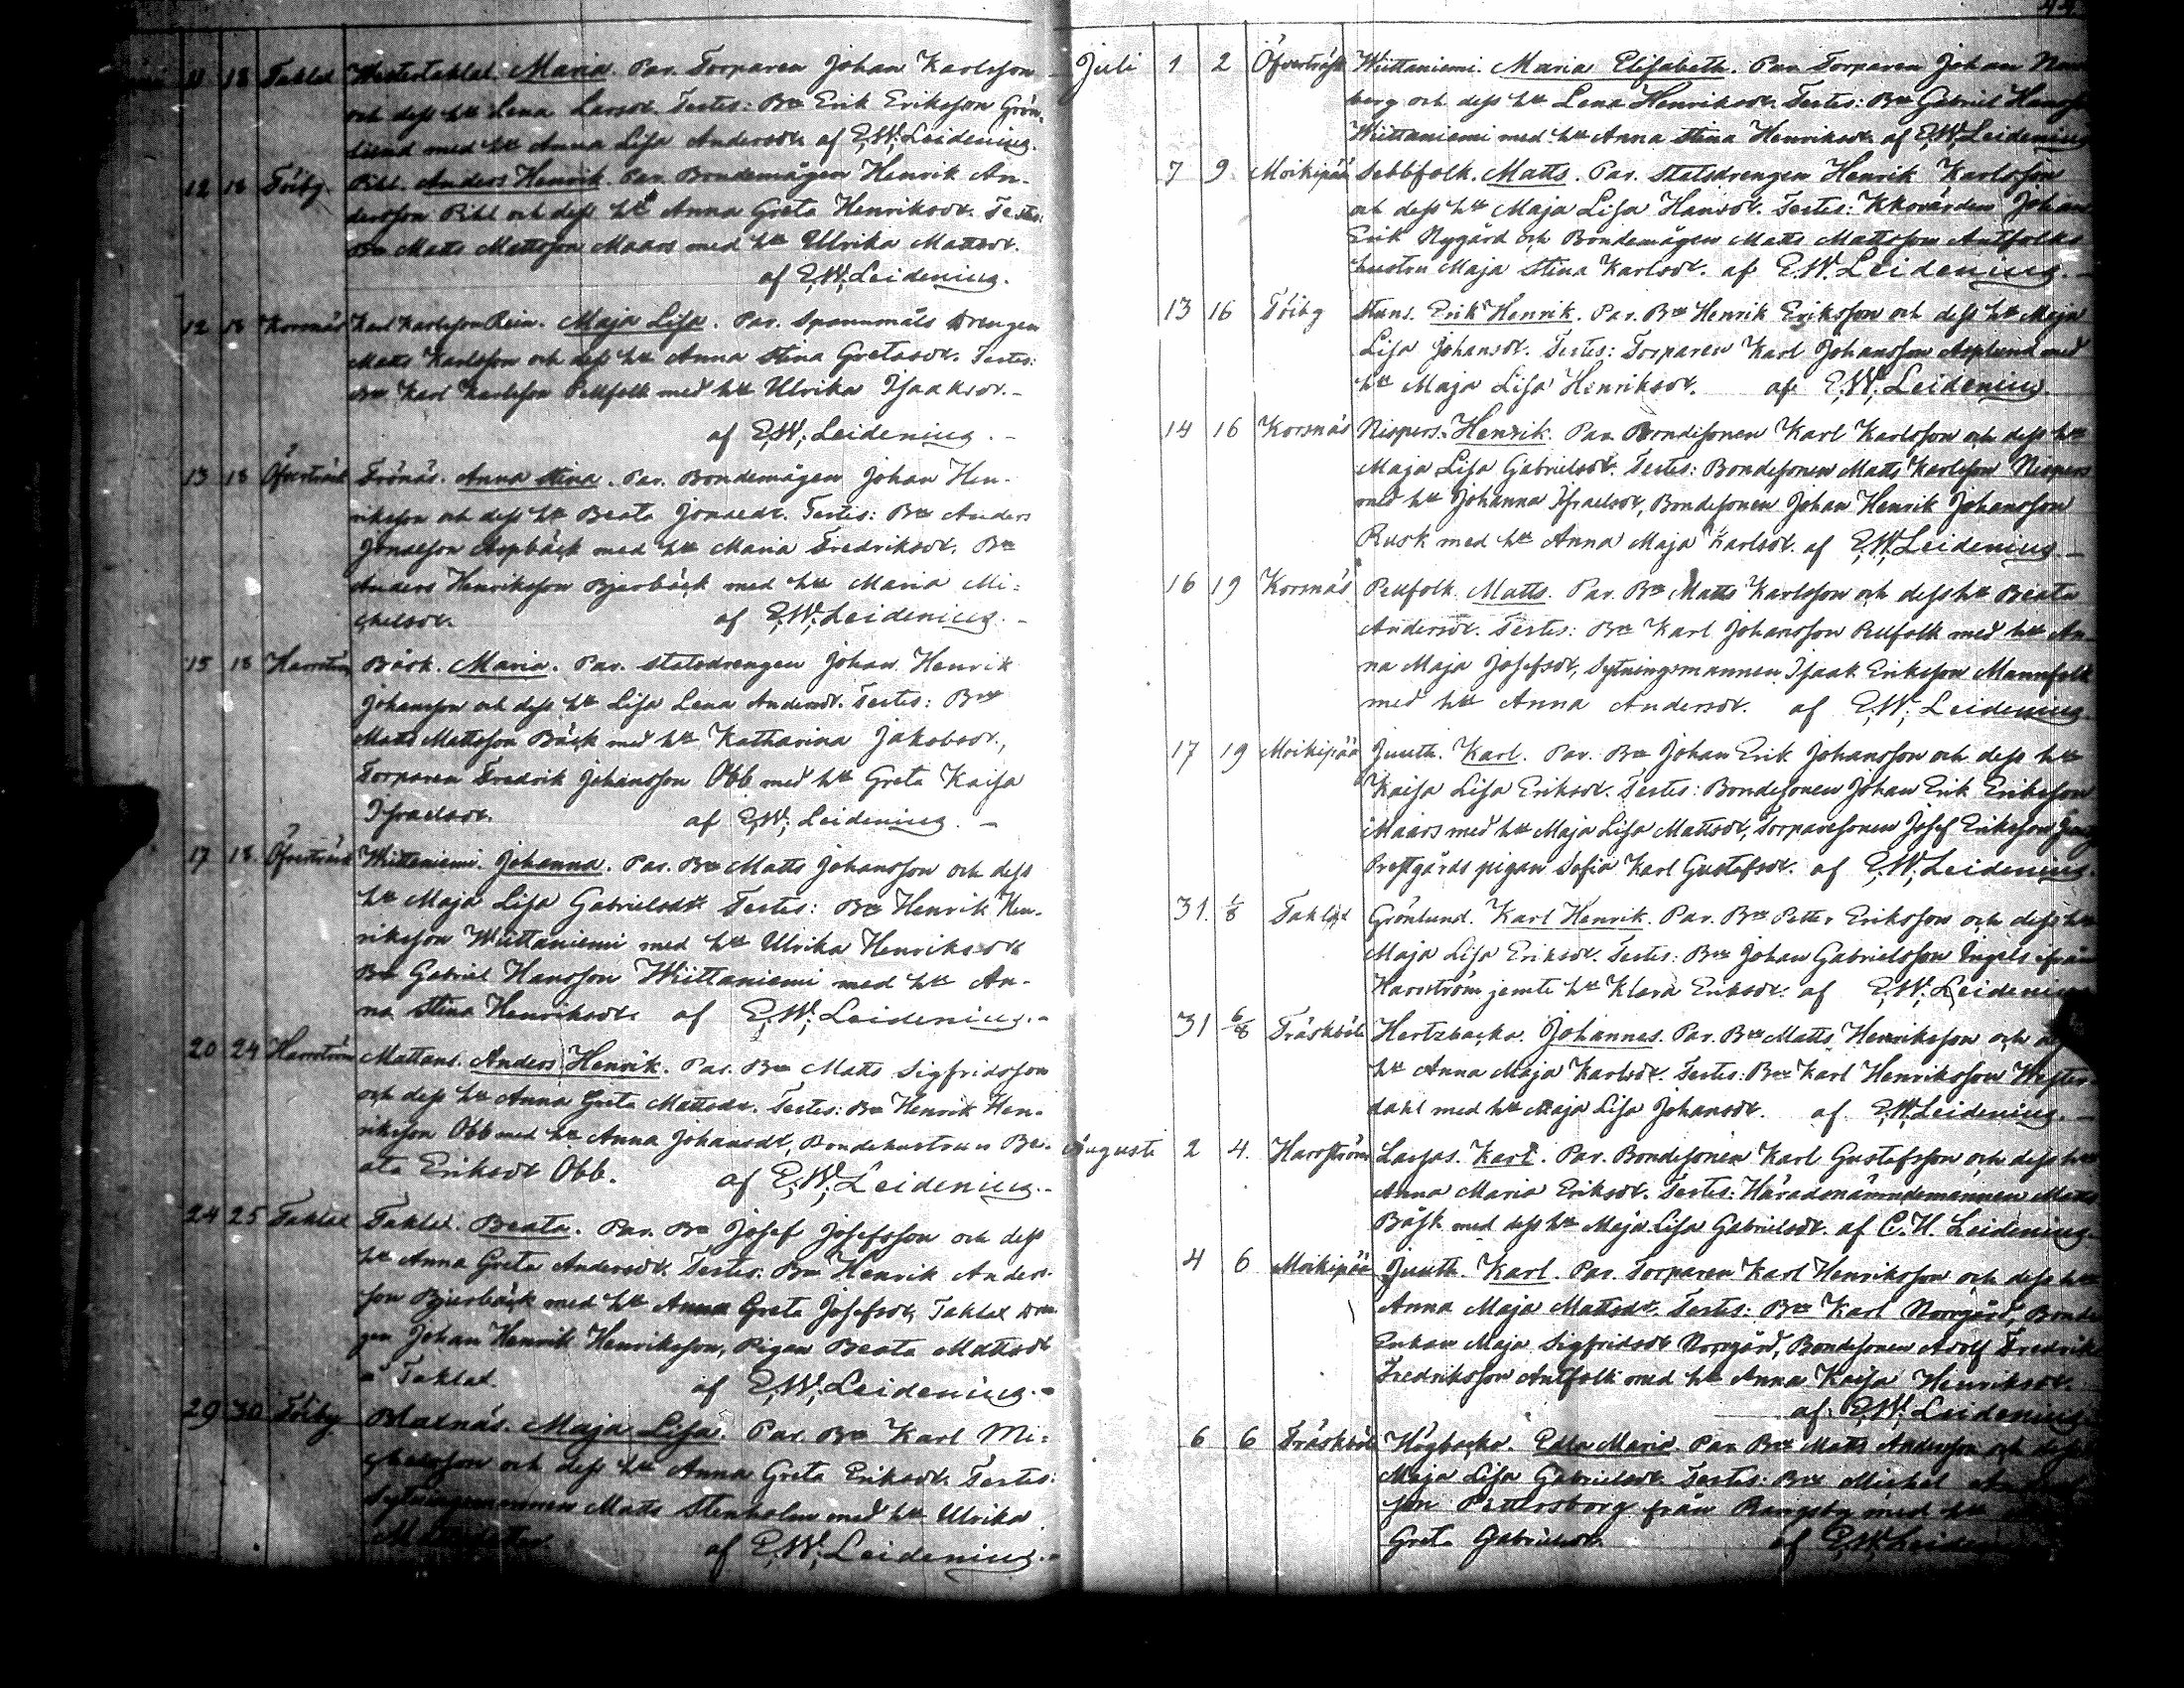 11 18 Taklax Westertaklax. Maria. Par. Torparen Johan Karlsson
och dess hu Lena Larsdr. Testes: Bn Erik Eriksson Grön-
lund med hu Anna Lisa Andersdr. af E.W. Leidenius.
12 18 Töiby. Pihl. Anders Henrik. Par. Bondemågen Henrik An-
dersson Pihl och dess hu Anna Greta Henriksdr. Testes:
Bn Matts Mattsson Maars med hu Ulrika Mattsdr.
af E.W. Leidenius.
12 18 Korsnäs Karl Karlsson Rein. Maja Lisa. Par. Spannmåls Drengen
Matts Karlsson och dess hu Anna Stina Gretasdr. Testes:
Bn Karl Karlsson Pellfolk med hu Ulrika Isaaksdr.
af E.W. Leidenius.
13 18 Öfverträsk Frönäs. Anna Stina. Par. Bondemågen Johan Hen-
riksson och dess hu Beata Jonasdr. Testes: Bn Anders
Jonasson Aspbäck med hu Maria Fredriksdr. Bn
Anders Henriksson Bjurbäck med hu Maria Mi-
chelsdr. af E.W. Leidenius.
15 18 Harrström Bäck. Maria. Par. Statsdrengen Johan Henrik
Johansson och dess hu Lisa Lena Andersdr. Testes: Bn
Matts Mattsson Bäck med hu Katharina Jakobsdr.,
Torparen Fredrik Johansson Obb med hu Greta Kaisa
Israelsdr. af E.W. Leidenius.
17 18 Öfverträsk Wiittaniemi. Johanna. Par. Bn Matts Johansson och dess
hu Maja Lisa Gabrielsdr. Testes: Bn Henrik Hen-
riksson Wiittaniemi med hu Ulrika Henriksdr
Bn Gabriel Hansson Wiittaniemi med hu An-
na Stina Henriksdr. af E.W. Leidenius.
20 24 Harrström Mattans. Anders Henrik. Par. Bn Matts Sigfridsson
och dess hu Anna Greta Mattsdr. Testes: Bn Henrik Hen-
riksson Obb med hu Anna Johansdr, Bondehustrun Be-
ata Eriksdr Obb. af E.W. Leidenius.
24 25 Taklax Taklax. Beata. Par. Bn Josef Josefsson och dess
hu Anna Greta Andersdr. Testes: Bn Henrik Anders-
son Bjurbäck med hu Anna Greta Josefsdr, Taklax Dren-
gen Johan Henrik Henriksson, Pigan Beata Mattsdr
å Taklax. af E.W. Leidenius.
29 30 Töiby Blaxnäs. Maja Lisa. Par. Bn Karl Mi-
chelsson och dess hu Anna Greta Eriksdr. Testes:
Sytningsmannen Matts Stenholm med hu Ulrika
af E.W. Leidenius.
Juli 1 2 Öfverträsk Wiittaniemi. Maria Elisabeth. Par. Torparen Johan
berg och dess hu Lena Henriksdr. Testes: Bn Gabriel Hansson
Wiittaniemi med hu Anna Stina Henriksdr. af E.W. Leidenius
7 9 Moikipää Sebbfolk. Matts. Par. Statsdrengen Henrik Karlsson
och dess hu Maja Lisa Hansdr. Testes: Kkovärden Johan
Erik Nygård och Bondemågen Matts Mattsson Antfolks
hustru Maja Stina Karlsdr. af E.W. Leidenius.
13 16 Töiby Stans. Erik Henrik. Par. Bn Henrik Eriksson och dess hu Maja
Lisa Johansdr. Testes: Torparen Karl Johansson Asplund med
hu Maja Lisa Henriksdr. af E.W. Leidenius.
14 16 Korsnäs Nispers. Henrik. Par. Bondesonen Karl Karlsson och dess hu
Maja Lisa Gabrielsdr. Testes: Bondesonen Matts Karlsson Nispers
med hu Johanna Israelsdr, Bondesonen Johan Henrik Johansson
Rusk med hu Anna Maja Karlsdr. af E.W. Leidenius
16 19 Korsnäs Pellfolk. Matts. Par. Bn Matts Karlsson och dess hu Beata
Andersdr. Testes: Bn Karl Johansson Pellfolk med hu An-
na Maja Josefsdr, Sytningsmannen Isaak Eriksson Mannfolk
med hu Anna Andersdr. af E.W. Leidenius.
17 19 Moikipää Juuth. Karl. Par. Bn Johan Erik Johansson och dess hu
Kaisa Lisa Eriksdr. Testes: Bondesonen Johan Erik Eriksson
Maars med hu Maja Lisa Mattsdr, Torparesonen Josef Eriksson
Prestgårds pigan Sofia Karl Gustafsdr. af E.W. Leidenius.
31. 1/8 Taklax Grönlund. Karl Henrik. Par. Bn Petter Eriksson och dess hu
Maja Lisa Eriksdr. Testes: Bn Johan Gabrielsson Ingels ifrån
Harrström jemte hu Klara Eriksdr. af E.W. Leidenius
31 6/8 Träskböle Hertzbacka. Johannes. Par. Bn Matts Henriksson och
hu Anna Maja Karlsdr. Testes: Bn Karl Henriksson Wester-
dahl med hu Maja Lisa Johansdr. af E.W. Leidenius.
Augusti 2 4. Harrström Lassas. Karl. Par. Bondesonen Karl Gustafsson och dess hu
Anna Maria Eriksdr. Testes: Häradsnämndemannen Matts
Bäck med dess hu Maja Lisa Gabrielsdr. af C.H. Leidenius.
4 6 Moikipää Juuth. Karl. Par. Torparen Karl Henriksson och dess hu
Anna Maja Mattsdr. Testes: Bn Karl Norrgård, Bonde
Enkan Maja Sigfridsdr Norrgård, Bondesonen Adolf Fredrik
Fredriksson Antfolk med hu Anna Kaisa Henriksdr.
af E.W. Leidenius
6 6 Träskböle Högbacka. Edla Maria. Par. Bn Matts Andersson och dess
Maja Lisa Gabrielsdr. Testes: Bn Michel
son Pettersborg från Rangsby med hu
Greta Gabrielsdr. af E.W. Leiden